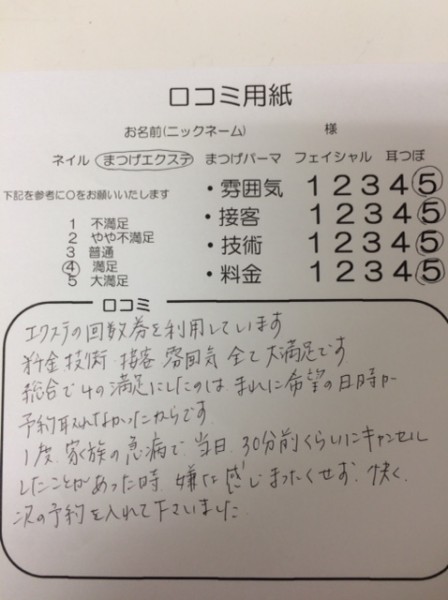 口コミ用紙
お名前(ニックネーム) 様
ネイル まつげエクステ まつげパーマ フェイシャル 耳つぼ
下記を参考に○をお願いいたします
1 不満足
2 やや不満足
3 普通
4 満足
5 大満足
・雰囲気 1 2 3 4 5
・接客 1 2 3 4 5
・技術 1 2 3 4 5
・料金 1 2 3 4 5
口コミ
エクステの回数券を利用しています
料金 技術・接客 雰囲気 全て大満足です
総合で4の満足にしたのは まれに希望の日時が
予約取れなかったからです
1度、家族の急病で、当日、30分前くらいにキャンセル
したことがあった時、嫌な感じまったくせず、快く、
次の予約を入れて下さいました